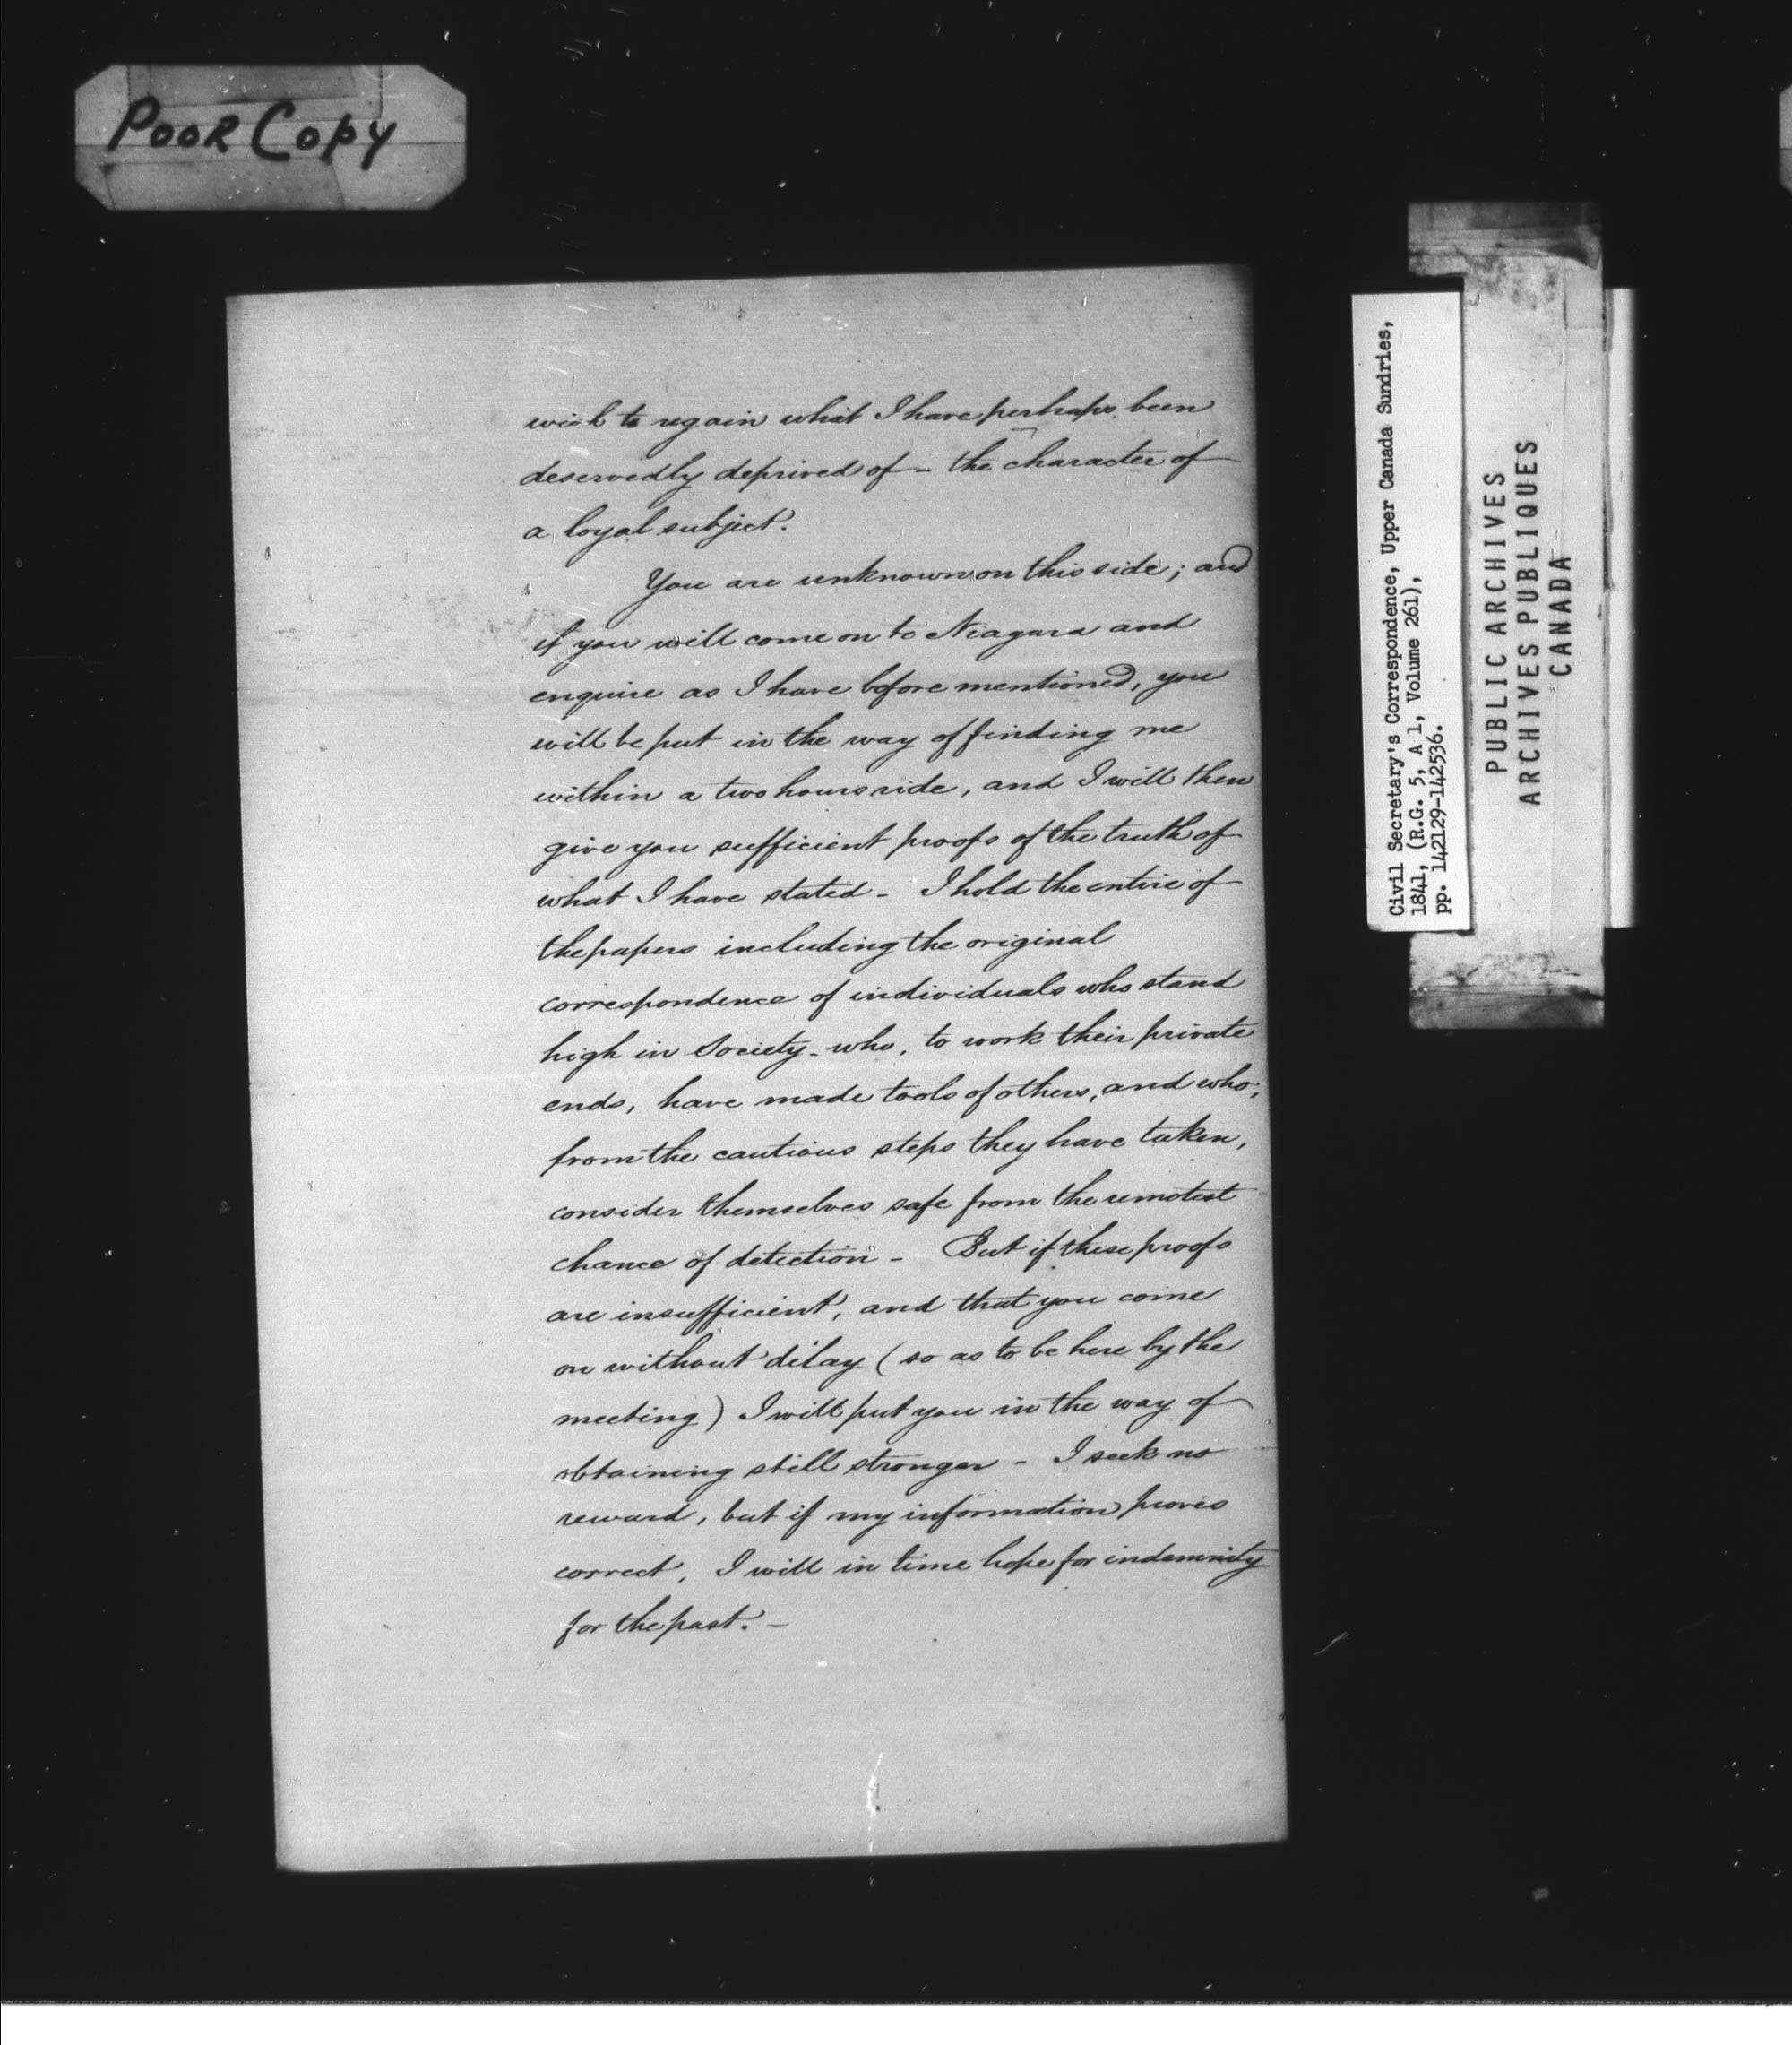 Poor Copy
wish to regain what I have perhaps been
deservedly deprived of - the character of
a loyal subject.
You are unknown on this side; and
if you will come on to Niagara and
enquire as I have before mentioned, you
will be put in the way of finding me
within a two hours ride, and I will then
give you sufficient proofs of the truth of
what I have stated - I hold the entire of
the papers including the original
correspondence of individuals who stand
high in Society - who, to work their private
ends, have made tools of others, and who,
from the cautious steps they have taken,
consider themselves safe from the remotest
chance of detection - But if these proofs
are insufficient, and that you come
on without delay (so as to be here by the
meeting) I will put you in the way of
obtaining still stronger - I seek no
reward, but if my information proves
correct, I will in time hope for indemnity
for the past. -
Civil Secretary's Correspondence, Upper Canada Sundries,
1841, (R.G. 5, A 1, Volume 261),
pp. 142129-142536.
PUBLIC ARCHIVES
ARCHIVES PUBLIQUES
CANADA